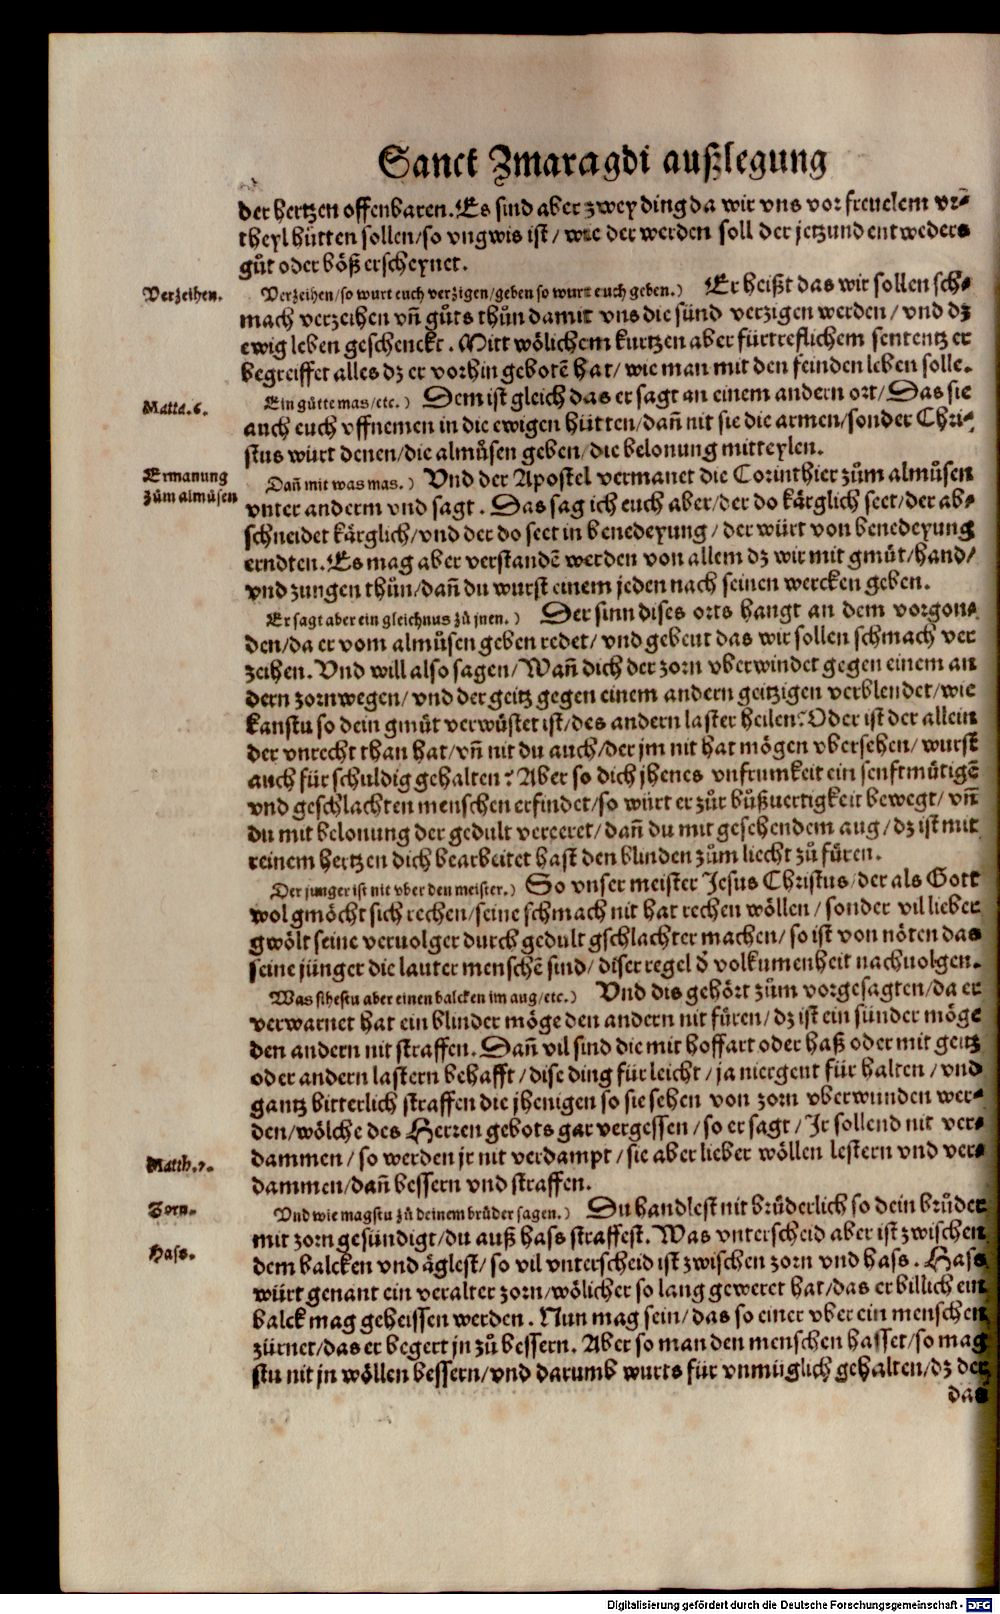 Sanct Zmaragdi außlegung
der hertzen offenbaren. Es sind aber zwey ding da wir vns vor freuelem vr-
theyl hütten sollen/so vngwis ist/ wie der werden soll der jetzund entweders
gůt oder böß erscheynet.
Verzeihen.
Verzeihen/so wurt euch verzigen/geben so wurt euch geben.) Er heißt das wir sollen sch-
mach verzeihen vñ gůts thůn damit vns die sünd verzigen werden/ vnd dz
ewig leben geschenckt. Mitt wölichem kurtzen aber fürtreflichem sententz er
begreiffet alles dz er vorhin gebotē hat/ wie man mit den feinden leben solle.
Matth.6.
Ein gütte mas/etc.) Dem ist gleich das er sagt an einem andern ort/ Das sie
auch euch vffnemen in die ewigen hütten/dañ nit sie die armen/sonder Chri-
stus würt denen/die almůsen geben/die belonung mitteylen.
Ermanung
zům almůsen
Dañ mit was mas.) Vnd der Apostel vermanet die Corinthier zům almůsen
vnter anderm vnd sagt. Das sag ich euch aber/der do kärglich seet/der ab-
schneidet kärglich/vnd der do seet in benedeyung/ der würt von benedeyung
erndten. Es mag aber verstandē werden von allem dz wir mit gmůt/hand/
vnd zungen thůn/dañ du wurst einem jeden nach seinen wercken geben.
Er sagt aber ein gleichnus zů jnen.) Der sinn dises orts hangt an dem vorgon-
den/da er vom almůsen geben redet/ vnd gebeut das wir sollen schmach ver
zeihen. Vnd will also sagen/ Wañ dich der zorn vberwindet gegen einem an
dern zornwegen/ vnd der geitz gegen einem andern geitzigen verblendet/wie
kanstu so dein gmůt verwüstet ist/des andern laster heilen? Oder ist der allein
der vnrecht than hat/vñ nit du auch/der jm nit hat mögen vbersehen/ wurst
auch für schuldig gehalten? Aber so dich jhenes vnfrumkeit ein senftmütigē
vnd geschlachten menschen erfindet/so würt er zůr bůßuertigkeit bewegt/ vñ
du mit belonung der gedult vereret/ dañ du mit gesehendem aug/ dz ist mit
reinem hertzen dich bearbeitet hast den blinden zům liecht zů füren.
Der junger ist nit vber den meister.) So vnser meister Jesus Christus/der als Gott
wol gmöcht sich rechen/seine schmach nit hat rechen wöllen/ sonder vil lieber
gwölt seine veruolger durch gedult gschlachter machen/ so ist von nöten das
seine jünger die lauter menschē sind/ diser regel d̄ volkumenheit nachuolgen.
Was sihestu aber einen balcken im aug/etc.) Vnd dis gehört zům vorgesagten/da er
verwarnet hat ein blinder möge den andern nit füren/ dz ist ein sünder möge
den andern nit straffen. Dañ vil sind die mit hoffart oder haß oder mit geitz
oder andern lastern behafft/ dise ding für leicht/ ja niergent für halten/ vnd
gantz bitterlich straffen die jhenigen so sie sehen von zorn vberwunden wer-
den/wölche des Herren gebots gar vergessen/ so er sagt/ Jr sollend nit ver-
Matth.7.
dammen/ so werden jr nit verdampt/ sie aber lieber wöllen lestern vnd ver-
dammen/dañ bessern vnd straffen.
Zorn.
Vnd wie magstu zů deinem brůder sagen.) Du handlest nit brůderlich so dein brůder
mit zorn gesündigt/du auß hass straffest. Was vnterscheid aber ist zwischen
Hass.
dem balcken vnd äglest/ so vil vnterscheid ist zwischen zorn vnd hass. Hass
würt genant ein veralter zorn/wölicher so lang geweret hat/das er billich ein
balck mag geheissen werden. Nun mag sein/das so einer vber ein menschen
zürnet/das er begert jn zů bessern. Aber so man den menschen hasset/so mag
stu nit jn wöllen bessern/vnd darumb wurts für vnmüglich gehalten/dz der
das
Digitalisierung gefördert durch die Deutsche Forschungsgemeinschaft - DFG